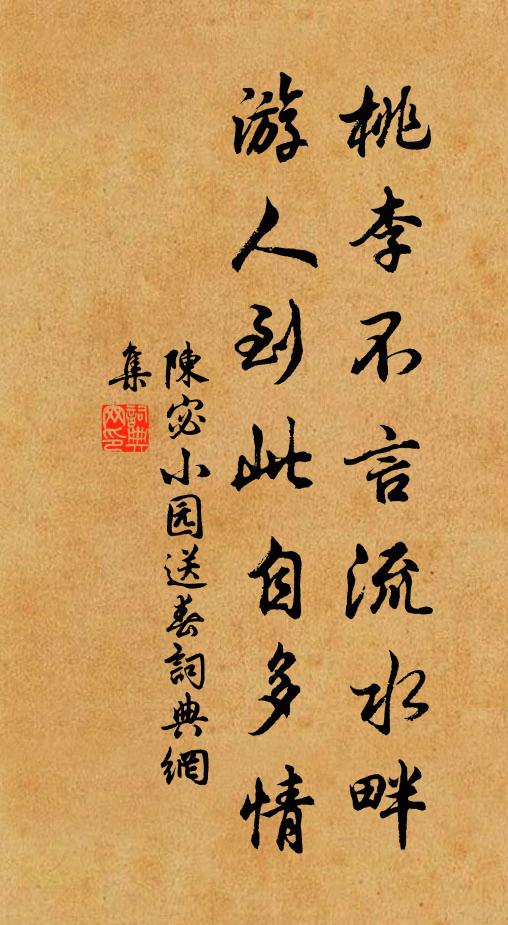 桃李不言流水畔
游人到此自多情
陳宓小园送春詞典網
集
詞典
网印